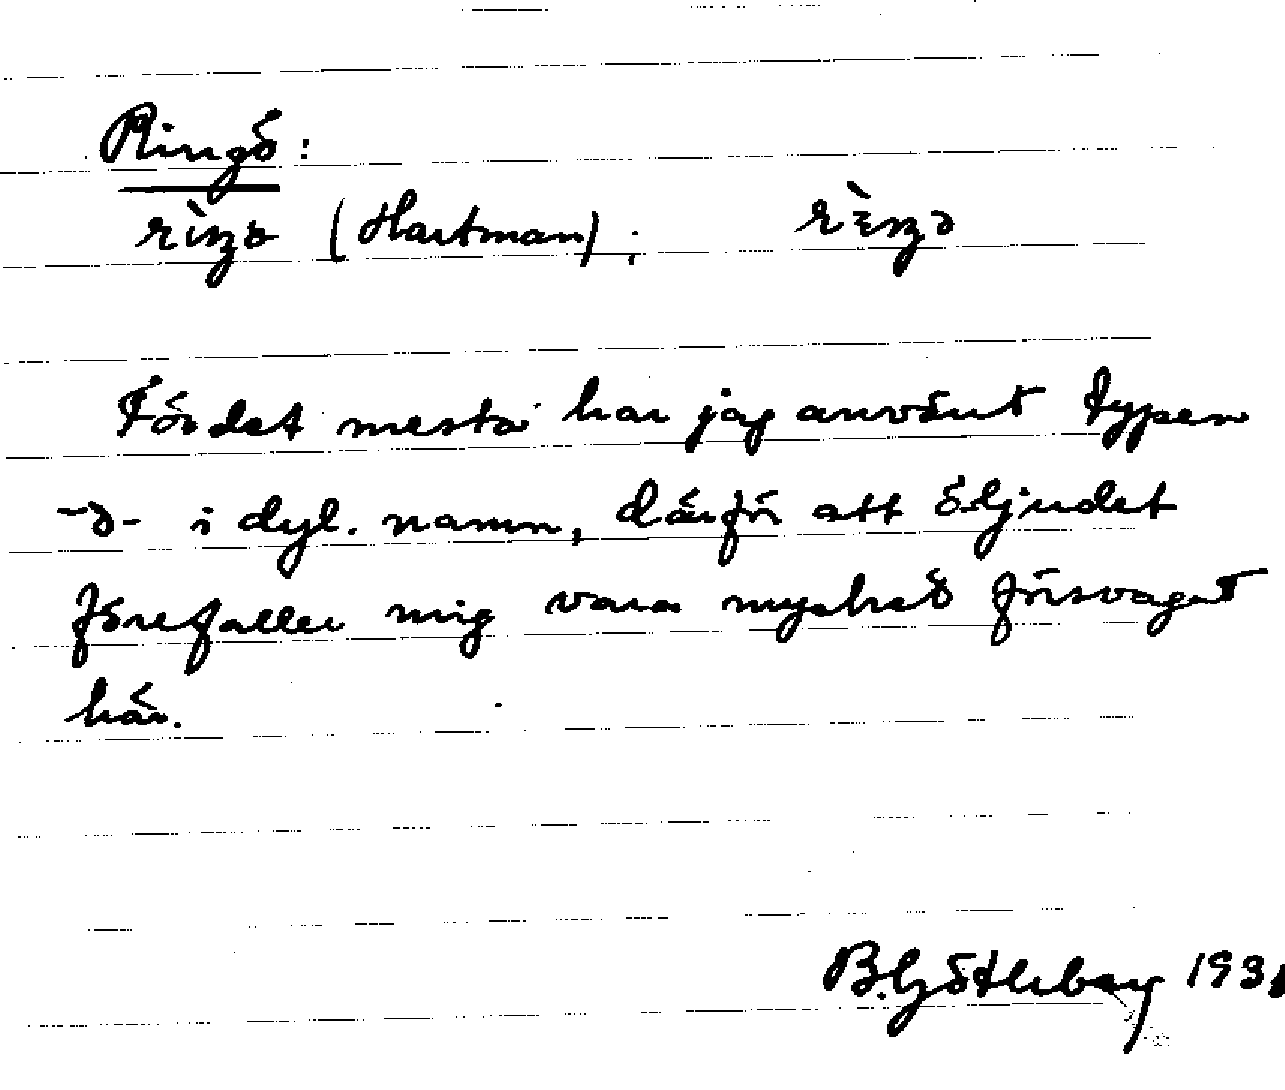 Ringö:
rìŋə (Hartman); rèŋə
För det mesta har jag använt typen
-ə- i dyl. namn, därför att ö-ljudet
förefaller mig vara mycket försvagat
här.
B. Götlebørg 193